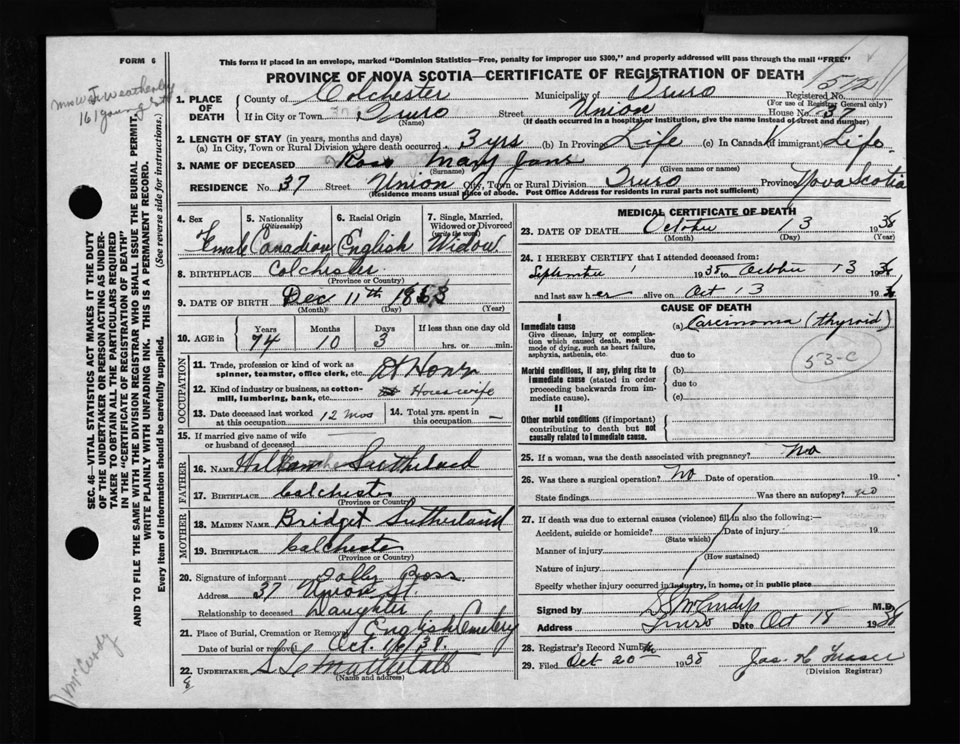 FORM 6
This form if placed in an envelope, marked "Dominion Statistics—Free, penalty for improper use $300," and properly addressed will pass through the mail "FREE"
PROVINCE OF NOVA SCOTIA—CERTIFICATE OF REGISTRATION OF DEATH
Registered No. 512
(For use of Registrar General only)
1. PLACE OF DEATH
County of Colchester Municipality of Truro
If in City or Town Truro (Name) Street Union House No. 37
(If death occurred in a hospital or institution, give the name instead of street and number)
2. LENGTH OF STAY (in years, months and days)
(a) In City, Town or Rural Division where death occurred 3 yrs (b) In Province Life (c) In Canada (if immigrant) Life
3. NAME OF DECEASED Ross (Surname) Mary Jane (Given name or names)
RESIDENCE No. 37 Street Union City, Town or Rural Division Truro Province Nova Scotia
(Residence means usual place of abode. Post Office Address for residents in rural parts not sufficient)
4. Sex Female
5. Nationality (Citizenship) Canadian
6. Racial Origin English
7. Single, Married, Widowed or Divorced (write the word) Widow
8. BIRTHPLACE Colchester
(Province or Country)
9. DATE OF BIRTH Dec 11th
(Month) (Day) (Year)
10. AGE in Years 74 Months 10 Days 3 If less than one day old
hrs. or min.
OCCUPATION
11. Trade, profession or kind of work as spinner, teamster, office clerk, etc. At Home
12. Kind of industry or business, as cotton-mill, lumbering, bank, etc. Housewife
13. Date deceased last worked at this occupation 12 mos
14. Total yrs. spent in this occupation —
15. If married give name of wife or husband of deceased
FATHER
16. NAME William Sutherland
17. BIRTHPLACE Colchester
(Province or Country)
MOTHER
18. MAIDEN NAME Bridget Sutherland
19. BIRTHPLACE Colchester
(Province or Country)
20. Signature of informant Dolly Ross
Address 37 Union St.
Relationship to deceased Daughter
21. Place of Burial, Cremation or Removal English Cemetery
Date of burial or removal Oct. 16/38.
22. UNDERTAKER
(Name and address)
MEDICAL CERTIFICATE OF DEATH
23. DATE OF DEATH October 13 1938
(Month) (Day) (Year)
24. I HEREBY CERTIFY that I attended deceased from:
September 1 1938 to October 13 1938
and last saw her alive on Oct 13 193
CAUSE OF DEATH
I
Immediate cause
Give disease, injury or complication which caused death, not the mode of dying, such as heart failure, asphyxia, asthenia, etc.
(a) Carcinoma (thyroid)
53-C
due to
Morbid conditions, if any, giving rise to immediate cause (stated in order proceeding backwards from immediate cause).
(b)
due to
(c)
II
Other morbid conditions (if important) contributing to death but not causally related to immediate cause.
25. If a woman, was the death associated with pregnancy? No
26. Was there a surgical operation? No Date of operation 19
State findings Was there an autopsy? no
27. If death was due to external causes (violence) fill in also the following:—
Accident, suicide or homicide? Date of injury 19
(State which)
Manner of injury
(How sustained)
Nature of injury
Specify whether injury occurred in industry, in home, or in public place
Signed by M.D.
Address Truro Date Oct 18 1938
28. Registrar's Record Number
29. Filed Oct 20th 1938 Jas. H. Fraser
(Division Registrar)
SEC. 46—VITAL STATISTICS ACT MAKES IT THE DUTY
OF THE UNDERTAKER OR PERSON ACTING AS UNDER-
TAKER TO OBTAIN ALL THE PARTICULARS REQUIRED
IN THE "CERTIFICATE OF REGISTRATION OF DEATH"
AND TO FILE THE SAME WITH THE DIVISION REGISTRAR WHO SHALL ISSUE THE BURIAL PERMIT.
WRITE PLAINLY WITH UNFADING INK. THIS IS A PERMANENT RECORD.
Every item of information should be carefully supplied. (See reverse side for instructions.)
161 Young St
McCurdy